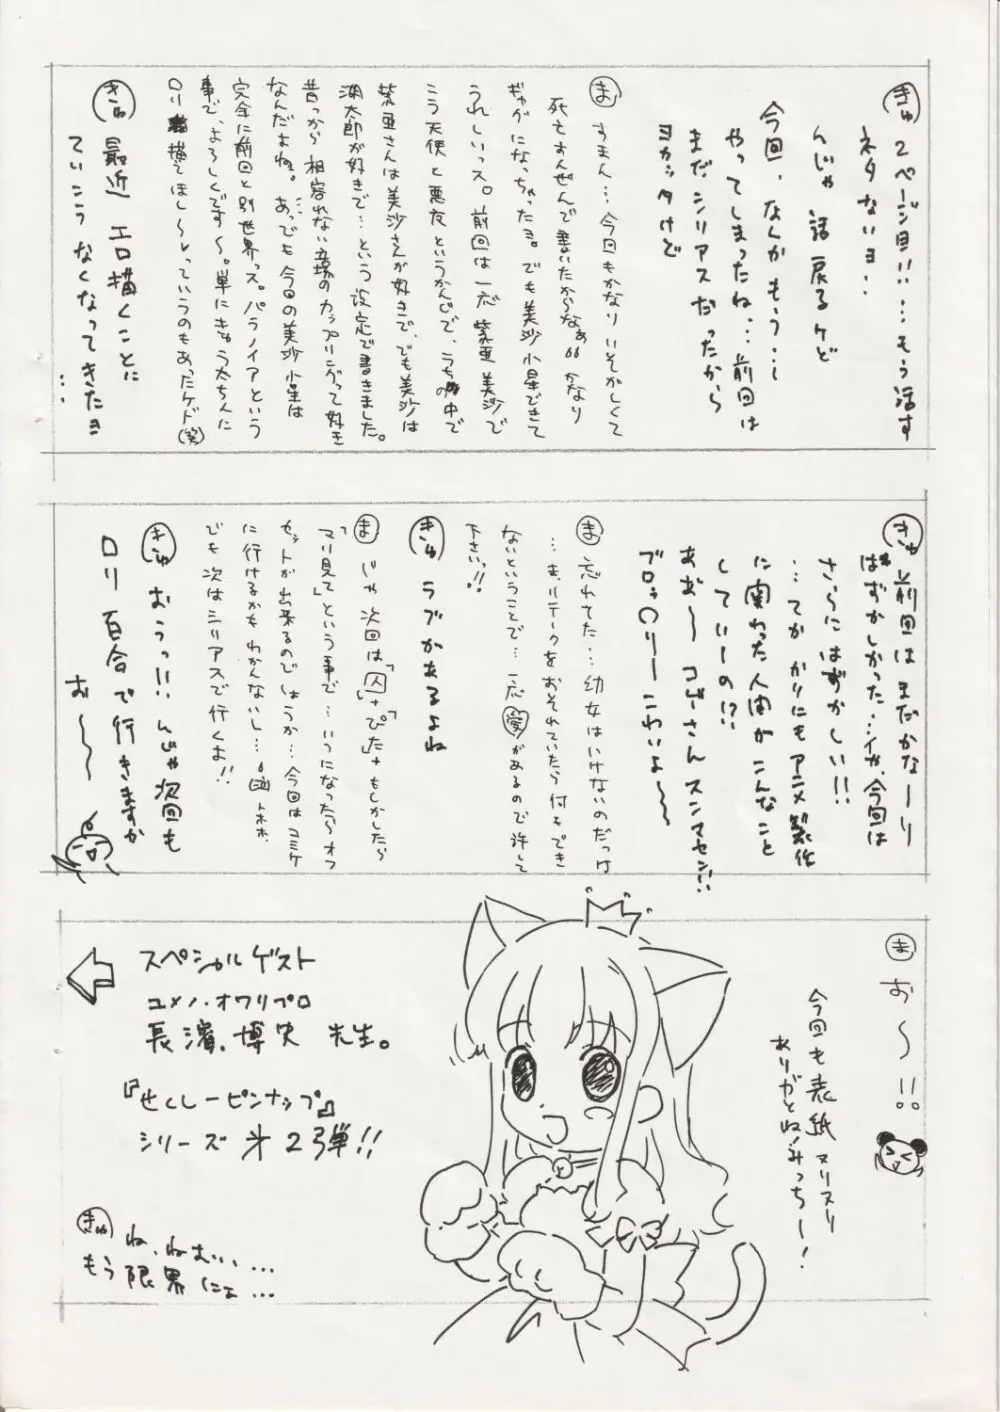 きゅ 2ページ目!! …もう話す
ネタないヨ…
んじゃ 話 戻るケど
今回、なんか もう…
やって しまったね… 前回は
まだ シリアス だったから
ヨカッタけど
ま すまん… 今回もかなりいそがしくて
死にそうな
かなり
ギャグになっちゃったヨ。でも美沙小星できて
うれしいっス。前回は一応 紫亜美沙で
こう天使と悪友というかんじで、うちの中で
紫亜さんは美沙さんが好きで、でも美沙は
湖太郎が好きで…という設定で書きました。
昔っから 相容れない立場のカップリングって好き
なんだよねぇ。あっでも今回の美沙小星は
完全に前回と別世界っス。パラノイアという
事で、よろしくです〜。単にきゅう太ちんに
ロリ描いてほし〜っていうのもあったケド(笑)
きゅ 最近 エロ描くことに
ていこう なくなってきたヨ
…
きゅ 前回は まだかな〜り
はずかしかった…イや、今回は
さらに はずかしい!!
…てか かりにも アニメ製作
に関わった人間が こんなこと
して いーの!?
あぁ〜 コゲさん スンマセン!!
ブロッ〇リー こわいよ〜
ま 忘れてた… 幼女はいけないのだっけ
…ま、リテークをおそれていたら何もでき
ないということで… 一応 愛 があるので許して
下さいっ!!
きゅ ラブが あるよね
ま じゃ 次回は「囚」+「ぴた」+もしかしたら
「マリ見て」という事で… いつになったらオフ
セットが出来るのでしょうか… 今回はコミケ
に行けるかも わかんないし… トホホ
でも次はシリアスで行くよ!!
きゅ おうっ!! んじゃ次回も
ロリ 百合で行きますか
お〜
ま お〜!!
今回も表紙 ヌリヌリ
ありがとね!みっちー!
スペシャル ゲスト
ユメノ・オワリプロ
長濱 博史 先生。
『せくしーピンナップ』
シリーズ 第2弾!!
きゅ ね、ねむい…
もう 限界 にょ…